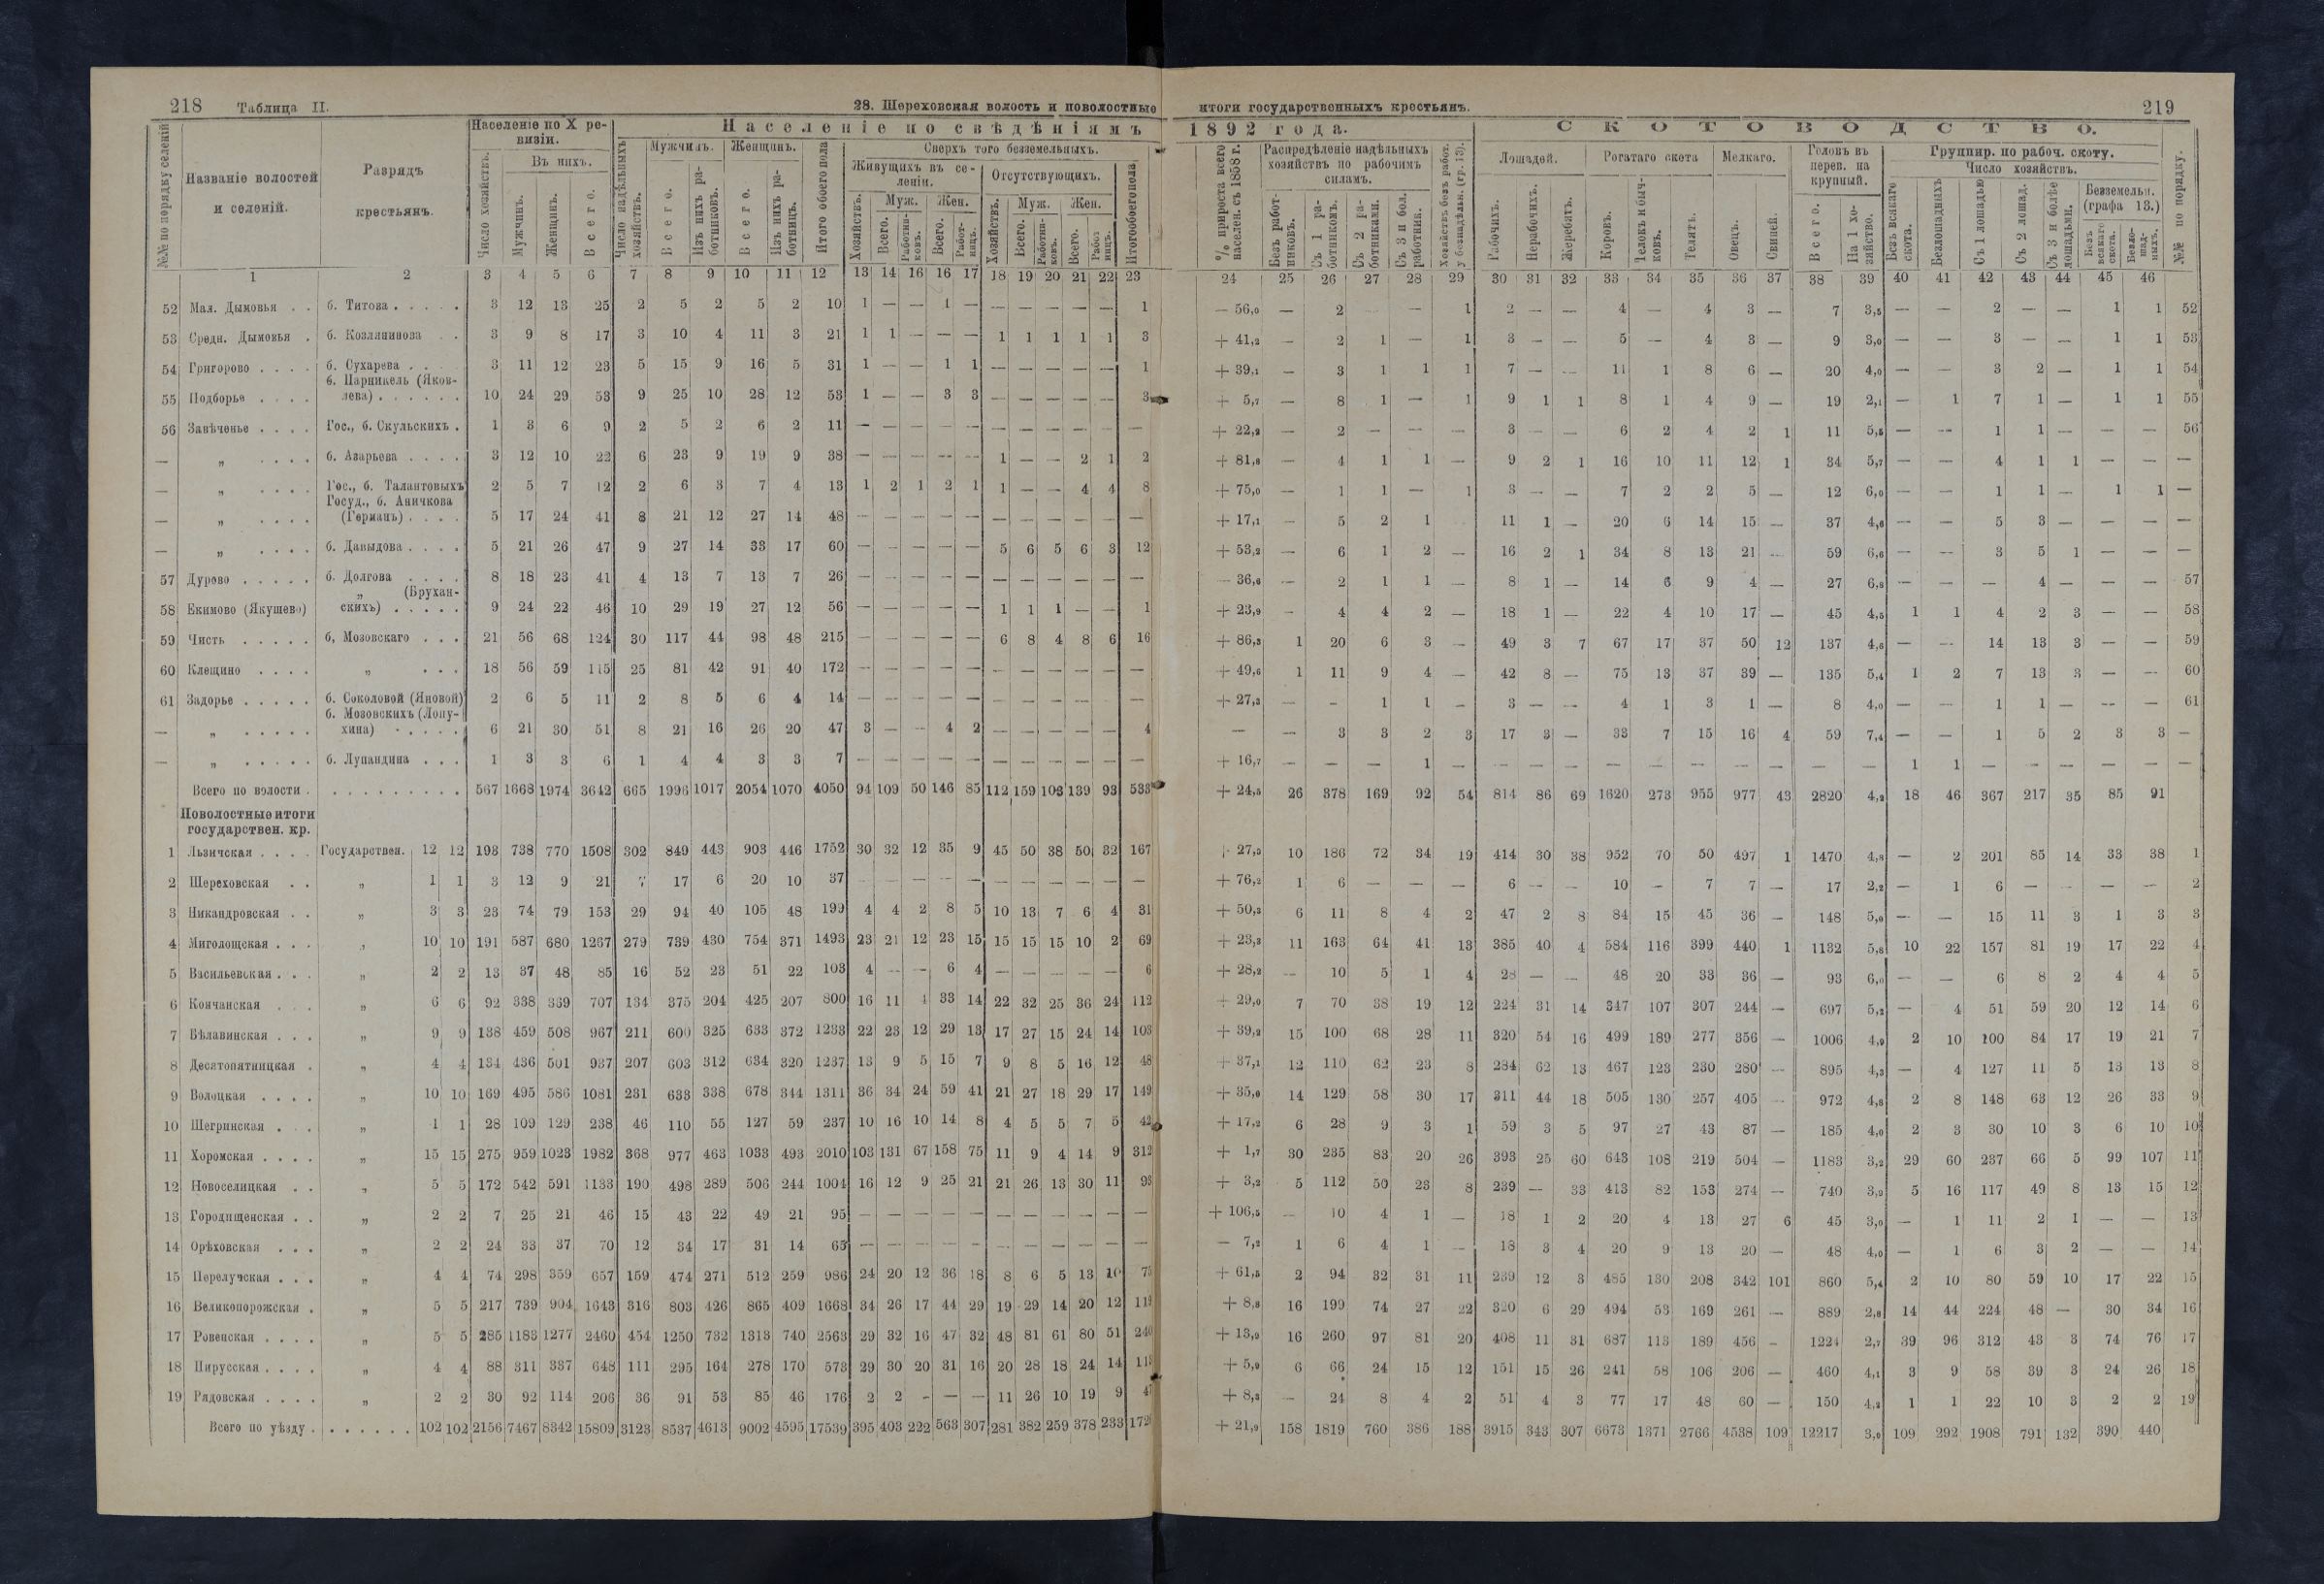 218 Таблица II. 28. Шереховская волость и поволостные итоги государственныхъ крестьянъ. 219
№№ по порядку селеній
Названіе волостей и селеній.
Разрядъ крестьянъ.
Населеніе по X ревизіи.
Число хозяйствъ.
Въ нихъ.
Мужчинъ.
Женщинъ.
Всего.
Населеніе по свѣдѣніямъ 1892 года.
Число надѣльныхъ хозяйствъ.
Мужчинъ.
Всего.
Изъ нихъ работниковъ.
Женщинъ.
Всего.
Изъ нихъ работницъ.
Итого обоего пола
Сверхъ того безземельныхъ.
Живущихъ въ селеніи.
Хозяйствъ.
Муж.
Всего.
Работниковъ.
Жен.
Всего.
Работницъ.
Отсутствующихъ.
Хозяйствъ.
Муж.
Всего.
Работниковъ.
Жен.
Всего.
Работницъ.
Итого обоего пола
% прироста всего населен. съ 1858 г.
Распредѣленіе надѣльныхъ хозяйствъ по рабочимъ силамъ.
Безъ работниковъ.
Съ 1 работникомъ.
Съ 2 работниками.
Съ 3 и бол. работник.
Хозяйствъ безъ работ. у безнадѣльн. (гр. 13).
СКОТОВОДСТВО.
Лошадей.
Рабочихъ.
Нерабочихъ.
Жеребятъ.
Рогатаго скота
Коровъ.
Телокъ и бычковъ.
Телятъ.
Мелкаго.
Овецъ.
Свиней.
Головъ въ перев. на крупный.
Всего.
На 1 хозяйство.
Группир. по рабоч. скоту.
Число хозяйствъ.
Безъ всякаго скота.
Безлошадныхъ
Съ 1 лошадью
Съ 2 лошад.
Съ 3 и болѣе лошадьми.
Безземельн. (графа 13.)
Безъ всякаго скота.
Безлошадныхъ.
№№ по порядку.
1 2 3 4 5 6 7 8 9 10 11 12 13 14 16 16 17 18 19 20 21 22 23 24 25 26 27 28 29 30 31 32 33 34 35 36 37 38 39 40 41 42 43 44 45 46
52 Мал. Дымовья . . б. Титова . . . . . 3 12 13 25 2 5 2 5 2 10 1 — — 1 — — — — — — 1 — 56,0 — 2 — 1 2 — — 4 — 4 3 — 7 3,5 — — 2 — — 1 1 52
53 Средн. Дымовья . б. Козлянинова . . 3 9 8 17 3 10 4 11 3 21 1 1 — — — 1 1 1 1 1 3 + 41,2 — 2 1 — 1 3 — — 5 — 4 3 — 9 3,0 — — 3 — — 1 1 53
54 Григорово . . . . б. Сухарева . . 3 11 12 23 5 15 9 16 5 31 1 — — 1 1 — — — — — 1 + 39,1 — 3 1 1 1 7 — — 11 1 8 6 — 20 4,0 — — 3 2 — 1 1 54
55 Подборье . . . . б. Парпикель (Яковлева) . . . . . . 10 24 29 53 9 25 10 28 12 53 1 — — 3 3 — — — — — 3 + 5,7 — 8 1 — 1 9 1 1 8 1 4 9 — 19 2,1 — 1 7 1 — 1 1 55
56 Завѣченье . . . . Гос., б. Скульскихъ . 1 3 6 9 2 5 2 6 2 11 — — — — — — — — — — — + 22,2 — 2 — — — 3 — — 6 2 4 2 1 11 5,5 — — 1 1 — — — 56
— „ . . . . б. Азарьева . . . . 3 12 10 22 6 23 9 19 9 38 — — — — — 1 — — 2 1 2 + 81,8 — 4 1 1 — 9 2 1 16 10 11 12 1 34 5,7 — — 4 1 1 — — —
— „ . . . . Гос., б. Талантовыхъ 2 5 7 12 2 6 3 7 4 13 1 2 1 2 1 1 — — 4 4 8 + 75,0 — 1 1 — 1 3 — — 7 2 2 5 — 12 6,0 — — 1 1 — 1 1 —
— „ . . . . Госуд., б. Аничкова (Германъ) . . . . 5 17 24 41 8 21 12 27 14 48 — — — — — — — — — — — + 17,1 — 5 2 1 11 1 — 20 6 14 15 — 37 4,6 — — 5 3 — — — —
— „ . . . . б. Давыдова . . . . 5 21 26 47 9 27 14 33 17 60 — — — — — 5 6 5 6 3 12 + 53,2 — 6 1 2 — 16 2 1 34 8 13 21 — 59 6,6 — — 3 5 1 — — —
57 Дурово . . . . . б. Долгова . . . . 8 18 23 41 4 13 7 13 7 26 — — — — — — — — — — — — 36,6 — 2 1 1 — 8 1 — 14 6 9 4 — 27 6,8 — — — 4 — — — 57
58 Екимово (Якушево) „ (Бруханскихъ) . . . . . 9 24 22 46 10 29 19 27 12 56 — — — — — 1 1 1 — — 1 + 23,9 — 4 4 2 — 18 1 — 22 4 10 17 — 45 4,5 1 1 4 2 3 — — 58
59 Чисть . . . . . б. Мозовскаго . . . 21 56 68 124 30 117 44 98 48 215 — — — — — 6 8 4 8 6 16 + 86,3 1 20 6 3 — 49 3 7 67 17 37 50 12 137 4,6 — — 14 13 3 — — 59
60 Клещино . . . . „ . . . 18 56 59 115 25 81 42 91 40 172 — — — — — — — — — — — + 49,6 1 11 9 4 — 42 8 — 75 13 37 39 — 135 5,4 1 2 7 13 3 — — 60
61 Задорье . . . . . б. Соколовой (Яновой) 2 6 5 11 2 8 5 6 4 14 — — — — — — — — — — — + 27,3 — — 1 1 — 3 — — 4 1 3 1 — 8 4,0 — — 1 1 — — — 61
— „ . . . . . б. Мозовскихъ (Лопухина) . . . . . 6 21 30 51 8 21 16 26 20 47 3 — — 4 2 — — — — — 4 — — 3 3 2 3 17 3 — 33 7 15 16 4 59 7,4 — — 1 5 2 3 3 —
— „ . . . . . б. Лупандина . . . 1 3 3 6 1 4 4 3 3 7 — — — — — — — — — — — + 16,7 — — — 1 — — — — — — — — — — — 1 1 — — — — — —
Всего по волости . . . . . . . . . . 567 1668 1974 3642 665 1996 1017 2054 1070 4050 94 109 50 146 85 112 159 103 139 93 533 + 24,5 26 378 169 92 54 814 86 69 1620 273 955 977 43 2820 4,2 18 46 367 217 35 85 91
Поволостные итоги государствен. кр.
1 Льзичская . . . . Государствен. 12 12 193 738 770 1508 302 849 443 903 446 1752 30 32 12 35 9 45 50 38 50 32 167 + 27,5 10 186 72 34 19 414 30 38 952 70 50 497 1 1470 4,8 — 2 201 85 14 33 38 1
2 Шереховская . . „ 1 1 3 12 9 21 7 17 6 20 10 37 — — — — — — — — — — — + 76,2 1 6 — — — 6 — — 10 — 7 7 — 17 2,2 — 1 6 — — — — 2
3 Никандровская . . „ 3 3 23 74 79 153 29 94 40 105 48 199 4 4 2 8 5 10 13 7 6 4 31 + 50,3 6 11 8 4 2 47 2 8 84 15 45 36 — 148 5,0 — — 15 11 3 1 3 3
4 Миголощская . . . „ 10 10 191 587 680 1267 279 739 430 754 371 1493 23 21 12 23 15 15 15 15 10 2 69 + 23,3 11 163 64 41 13 385 40 4 584 116 399 440 1 1132 5,8 10 22 157 81 19 17 22 4
5 Васильевская . . . „ 2 2 13 37 48 85 16 52 23 51 22 103 4 — — 6 4 — — — — — 6 + 28,2 — 10 5 1 4 28 — — 48 20 33 36 — 93 6,0 — — 6 8 2 4 4 5
6 Кончанская . . . „ 6 6 92 338 369 707 134 375 204 425 207 800 16 11 4 33 14 22 32 25 36 24 112 + 29,0 7 70 38 19 12 224 31 14 347 107 307 244 — 697 5,2 — 4 51 59 20 12 14 6
7 Бѣлавинская . . . „ 9 9 138 459 508 967 211 600 325 633 372 1233 22 23 12 29 13 17 27 15 24 14 103 + 39,2 15 100 68 28 11 320 54 16 499 189 277 356 — 1006 4,9 2 10 100 84 17 19 21 7
8 Десятопятницкая . „ 4 4 134 436 501 937 207 603 312 634 320 1237 13 9 5 15 7 9 8 5 16 12 48 + 37,1 12 110 62 23 8 284 62 13 467 123 230 280 — 895 4,3 — 4 127 11 5 13 13 8
9 Волоцкая . . . . „ 10 10 169 495 586 1081 231 633 338 678 344 1311 36 34 24 59 41 21 27 18 29 17 149 + 35,0 14 129 58 30 17 311 44 18 505 130 257 405 — 972 4,8 2 8 148 63 12 26 33 9
10 Шегринская . . . „ 1 1 28 109 129 238 46 110 55 127 59 237 10 16 10 14 8 4 5 5 7 5 42 + 17,2 6 28 9 3 1 59 3 5 97 27 43 87 — 185 4,0 2 3 30 10 3 6 10 10
11 Хоромская . . . . „ 15 15 275 959 1023 1982 368 977 463 1033 493 2010 103 131 67 158 75 11 9 4 14 9 312 + 1,7 30 235 83 20 26 393 25 60 643 108 219 504 — 1183 3,2 29 60 237 66 5 99 107 11
12 Новоселицкая . . „ 5 5 172 542 591 1133 190 498 289 506 244 1004 16 12 9 25 21 21 26 13 30 11 93 + 3,2 5 112 50 23 8 239 — 33 413 82 153 274 — 740 3,9 5 16 117 49 8 13 15 12
13 Городищенская . . „ 2 2 7 25 21 46 15 43 22 49 21 95 — — — — — — — — — — — + 106,5 — 10 4 1 — 18 1 2 20 4 13 27 6 45 3,0 — 1 11 2 1 — — 13
14 Орѣховская . . . „ 2 2 24 33 37 70 12 34 17 31 14 65 — — — — — — — — — — — — 7,2 1 6 4 1 — 18 3 4 20 9 13 20 — 48 4,0 — 1 6 3 2 — — 14
15 Перелучская . . . „ 4 4 74 298 359 657 159 474 271 512 259 986 24 20 12 36 18 8 6 5 13 10 75 + 61,5 2 94 32 31 11 239 12 3 485 130 208 342 101 860 5,4 2 10 80 59 10 17 22 15
16 Великопорожская . „ 5 5 217 739 904 1643 316 803 426 865 409 1668 34 26 17 44 29 19 29 14 20 12 119 + 8,8 16 199 74 27 22 320 6 29 494 53 169 261 — 889 2,8 14 44 224 48 — 30 34 16
17 Ровенская . . . . „ 5 5 285 1183 1277 2460 454 1250 732 1313 740 2563 29 32 16 47 32 48 81 61 80 51 240 + 13,9 16 260 97 81 20 408 11 31 687 113 189 456 — 1224 2,7 39 96 312 43 3 74 76 17
18 Пирусская . . . . „ 4 4 88 311 337 648 111 295 164 278 170 573 29 30 20 31 16 20 28 18 24 14 113 + 5,9 6 66 24 15 12 151 15 26 241 58 106 206 — 460 4,1 3 9 58 39 3 24 26 18
19 Рядовская . . . . „ 2 2 30 92 114 206 36 91 53 85 46 176 2 2 — — — 11 26 10 19 9 47 + 8,3 — 24 8 4 2 51 4 3 77 17 48 60 — 150 4,2 1 1 22 10 3 2 2 19
Всего по уѣзду . . . . . . . 102 102 2156 7467 8342 15809 3123 8537 4613 9002 4595 17539 395 403 222 563 307 281 382 259 378 233 172 + 21,9 158 1819 760 386 188 3915 343 307 6673 1371 2766 4538 109 12217 3,9 109 292 1908 791 132 390 440